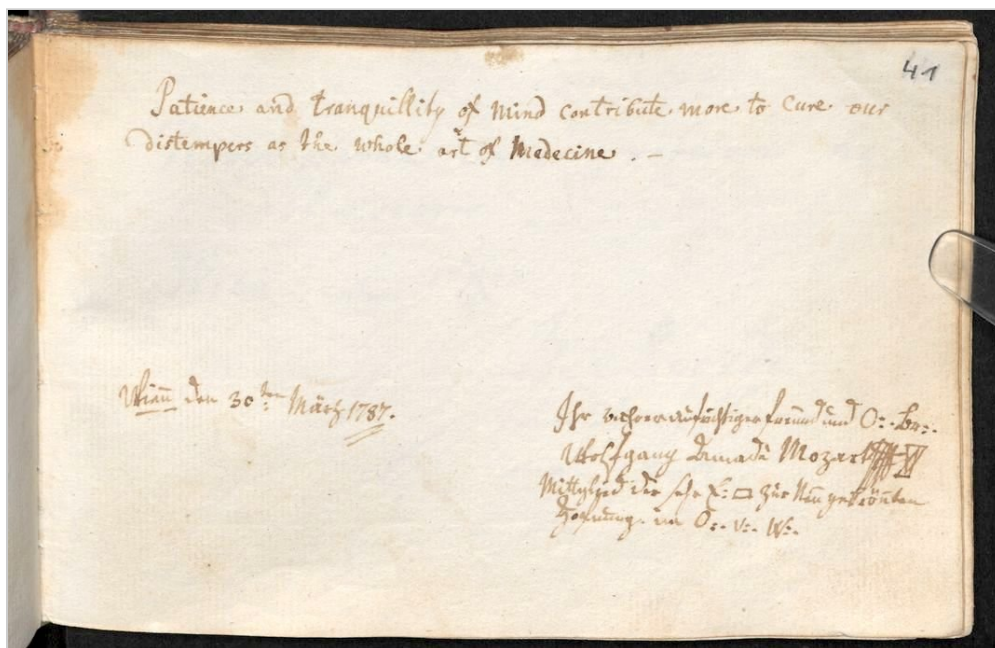 41
Patience and tranquillity of mind contribute more to cure our
distempers as the whole art of Medecine. —
Wien̅ den 30ten März 1787.
Ihr wahrer aufrichtiger Freund und O:. Br:.
Wolfgang Amadè Mozart
Mittglied der sehr E: □ zur Neugekrönten
Hofnung im O:. v:. W:.